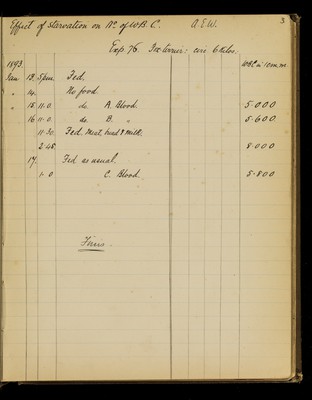 Effect of Starvation on No. of W.B.C. A.E.W. 3
Exp. 76. Fox terrier: circ 6 kilos.
1893. W.B.C. in 1 c.m.m.
Jan 13. 5 p.m. Fed.
" 14. No food
" 15. 11.0 do. A. Blood. 5.000
" 16. 11.0 do. B. " 5.600
11.30. Fed. Meat, bread & milk.
2.45 8.000
17. Fed as usual.
1.0 C. Blood 5.800
Finis